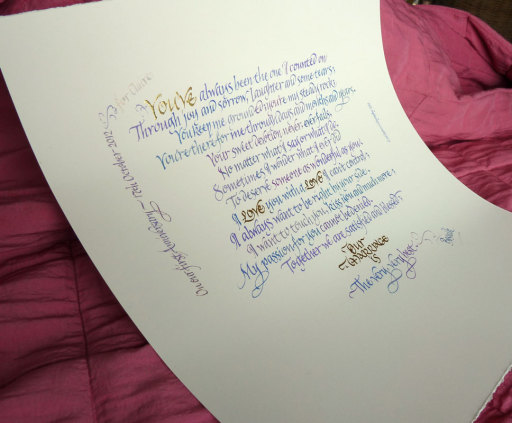 for Claire
YOU'VE always been the one I counted on
Through joy and sorrow, laughter and some tears;
You keep me grounded, you're my steady rock;
You're there for me through days and months and years.
Your sweet devotion never ever fails,
No matter what I say or what I do;
Sometimes I wonder what I ever did
To deserve someone as wonderful as you.
I LOVE you with a LOVE I can't control;
I always want to be right by your side.
I want to touch you, kiss you and much more;
My passion for you cannot be denied.
Together we are satisfied and blessed;
Our
is
The very, very best.
On our first Anniversary October 2012